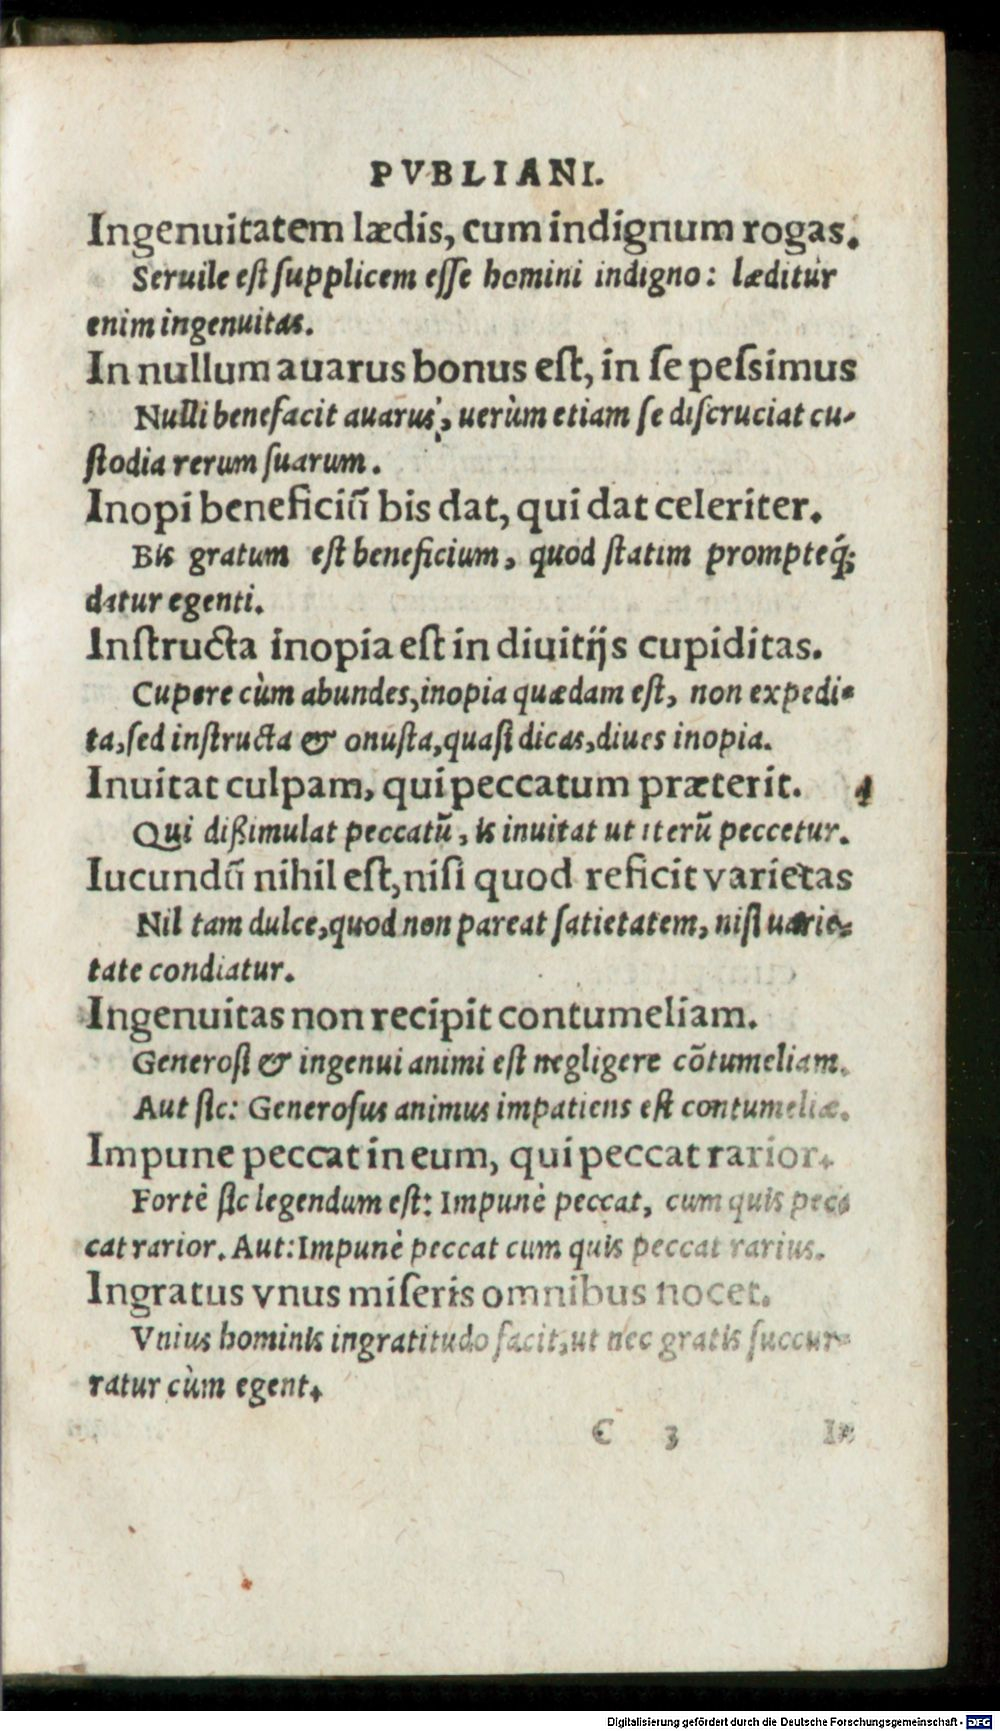 PVBLIANI.
Ingenuitatem lædis, cum indignum rogas.
Seruile est supplicem esse homini indigno: læditur
enim ingenuitas.
In nullum auarus bonus est, in se pessimus
Nulli benefacit auarus, uerùm etiam se discruciat cu-
stodia rerum suarum.
Inopi beneficiũ bis dat, qui dat celeriter.
Bis gratum est beneficium, quod statim prompteq́;
datur egenti.
Instructa inopia est in diuitijs cupiditas.
Cupere cùm abundes, inopia quædam est, non expedi-
ta, sed instructa & onusta, quasi dicas, diues inopia.
Inuitat culpam, qui peccatum præterit.
Qui dißimulat peccatũ, is inuitat ut iterũ peccetur.
Iucundũ nihil est, nisi quod reficit varietas
Nil tam dulce, quod non pareat satietatem, nisi uarie-
tate condiatur.
Ingenuitas non recipit contumeliam.
Generosi & ingenui animi est negligere cõtumeliam.
Aut sic: Generosus animus impatiens est contumeliæ.
Impune peccat in eum, qui peccat rarior.
Fortè sic legendum est: Impunè peccat, cum quis pec-
cat rarior. Aut: Impunè peccat cum quis peccat rarius.
Ingratus vnus miseris omnibus nocet.
Vnius hominis ingratitudo facit, ut nec gratis succur-
ratur cùm egent.
C 3
Digitalisierung gefördert durch die Deutsche Forschungsgemeinschaft - DFG